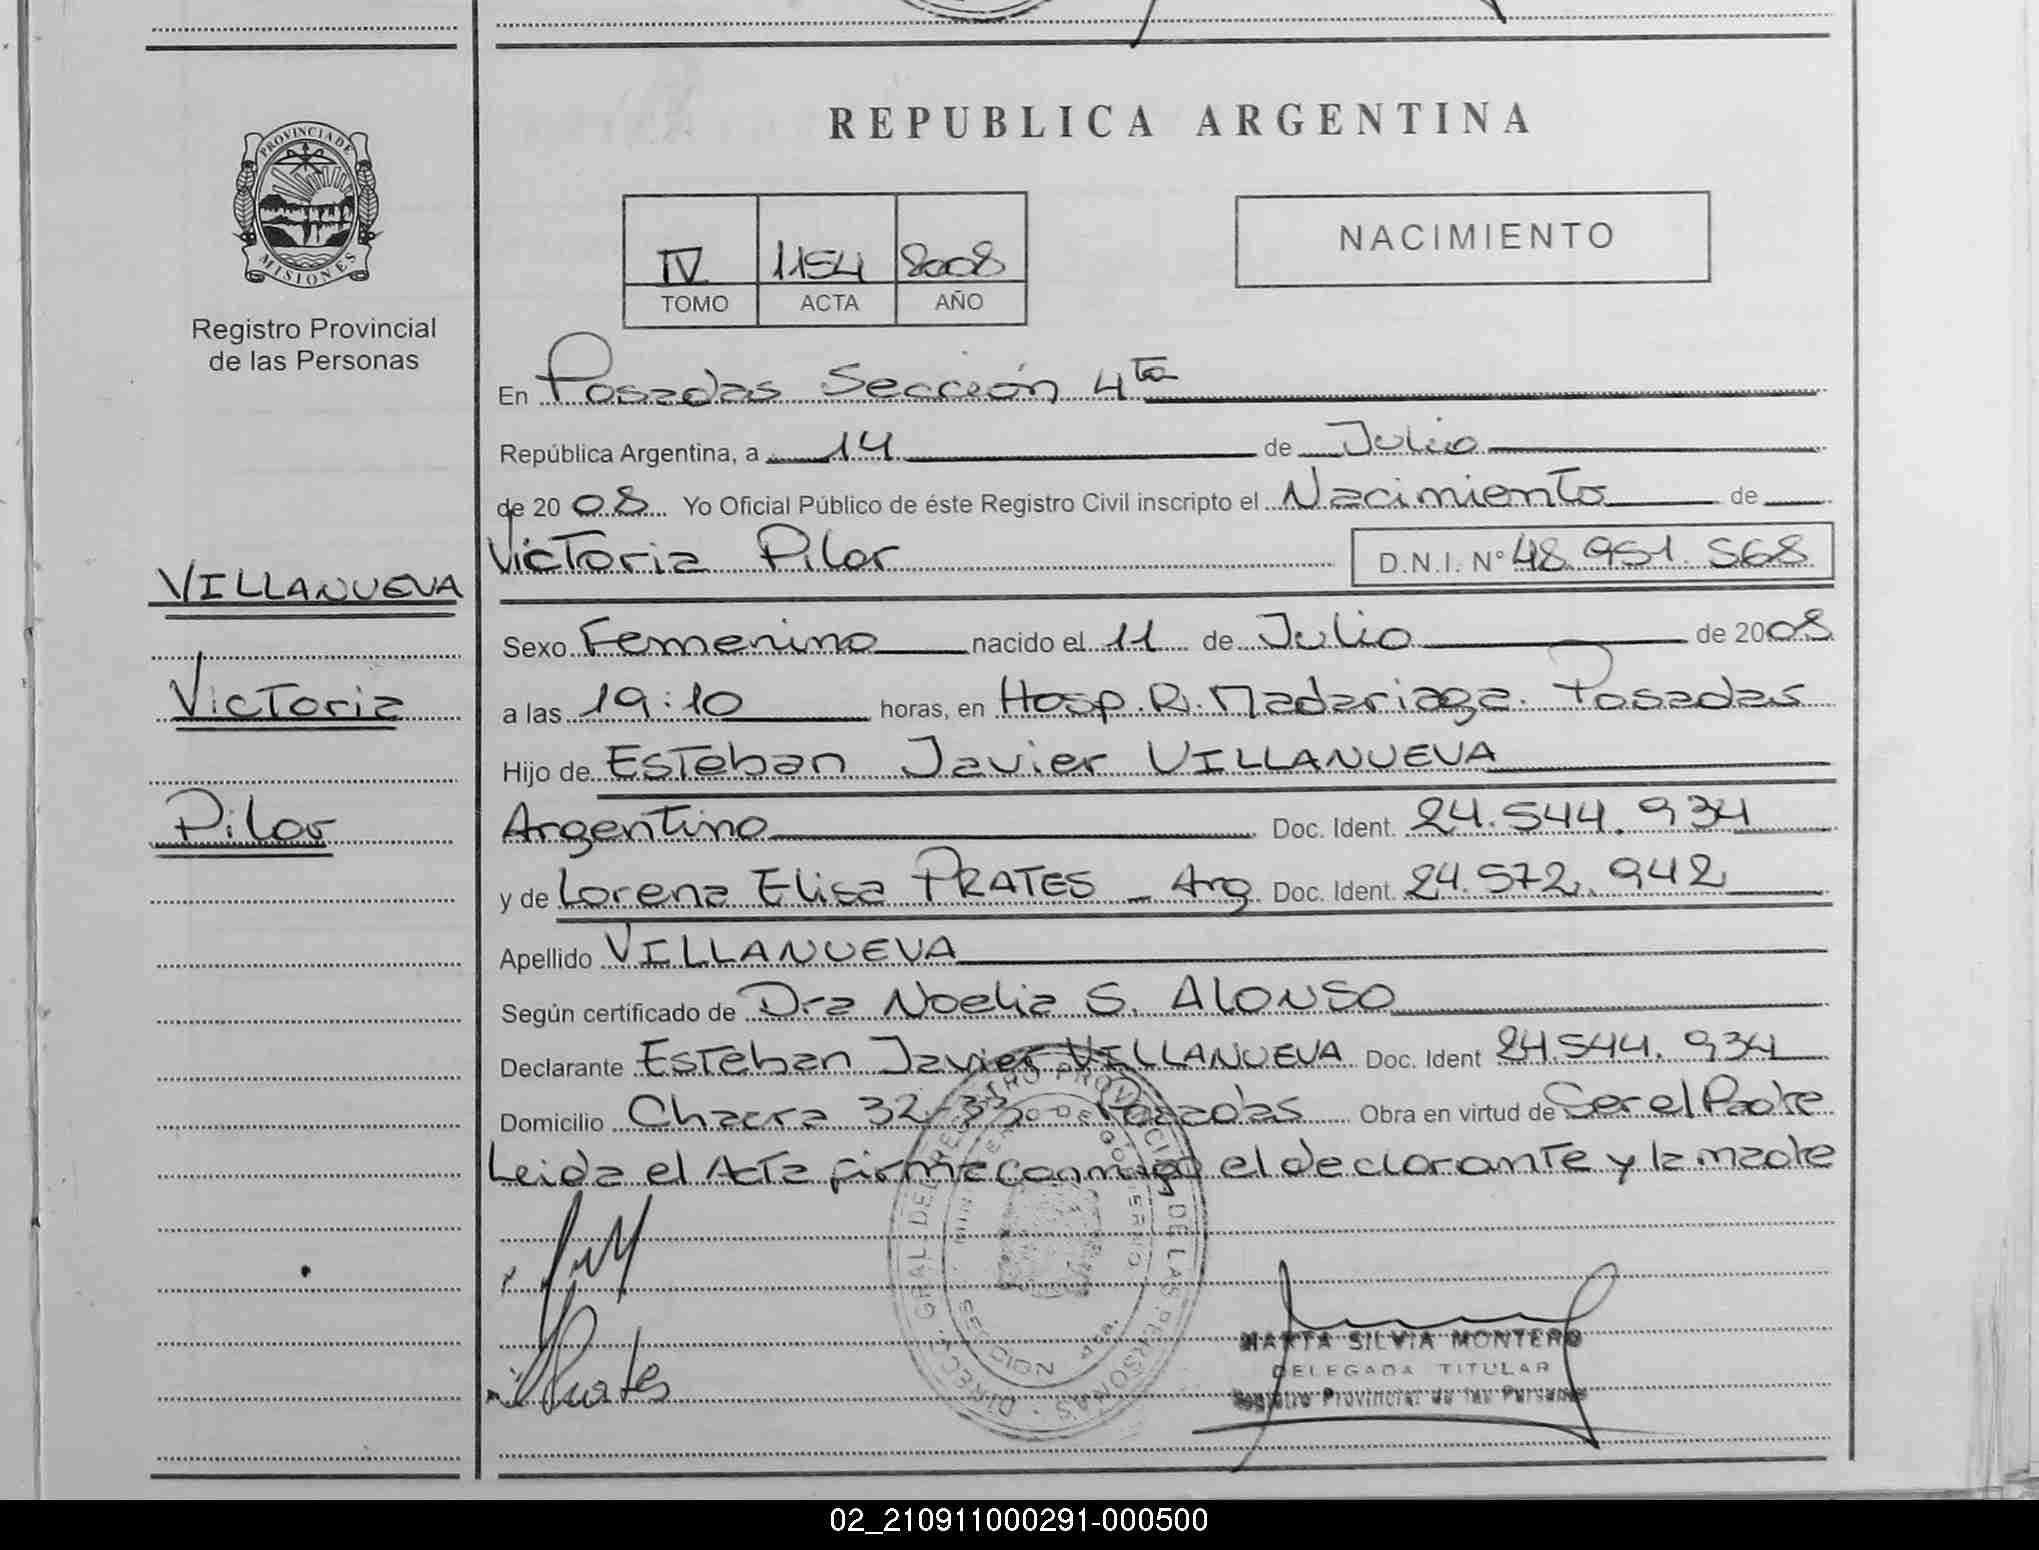 PROVINCIA DE
MISIONES
Registro Provincial
de las Personas
VILLANUEVA
Victoria
Pilar
REPUBLICA ARGENTINA
IV 1154 2008
TOMO ACTA AÑO
NACIMIENTO
En Posadas Sección 4ta
República Argentina, a 14 de Julio
de 20 08 Yo Oficial Público de éste Registro Civil inscripto el Nacimiento de
Victoria Pilar D.N.I. N° 48.951.568
Sexo Femenino nacido el 11 de Julio de 2008
a las 19:10 horas, en Hosp. R. Madariaga. Posadas
Hijo de Esteban Javier VILLANUEVA
Argentino Doc. Ident. 24.544.934
y de Lorena Elisa PRATES - Arg Doc. Ident. 24.572.942
Apellido VILLANUEVA
Según certificado de Dra Noelia S. ALONSO
Declarante Esteban Javier VILLANUEVA Doc. Ident 24.544.934
Domicilio Chacra 32-33 Posadas Obra en virtud de Ser el Padre
Leida el Acta firma conmigo el declarante y la madre
Prates
MARTA SILVIA MONTERO
DELEGADA TITULAR
Registro Provincial de las Personas
02_210911000291-000500